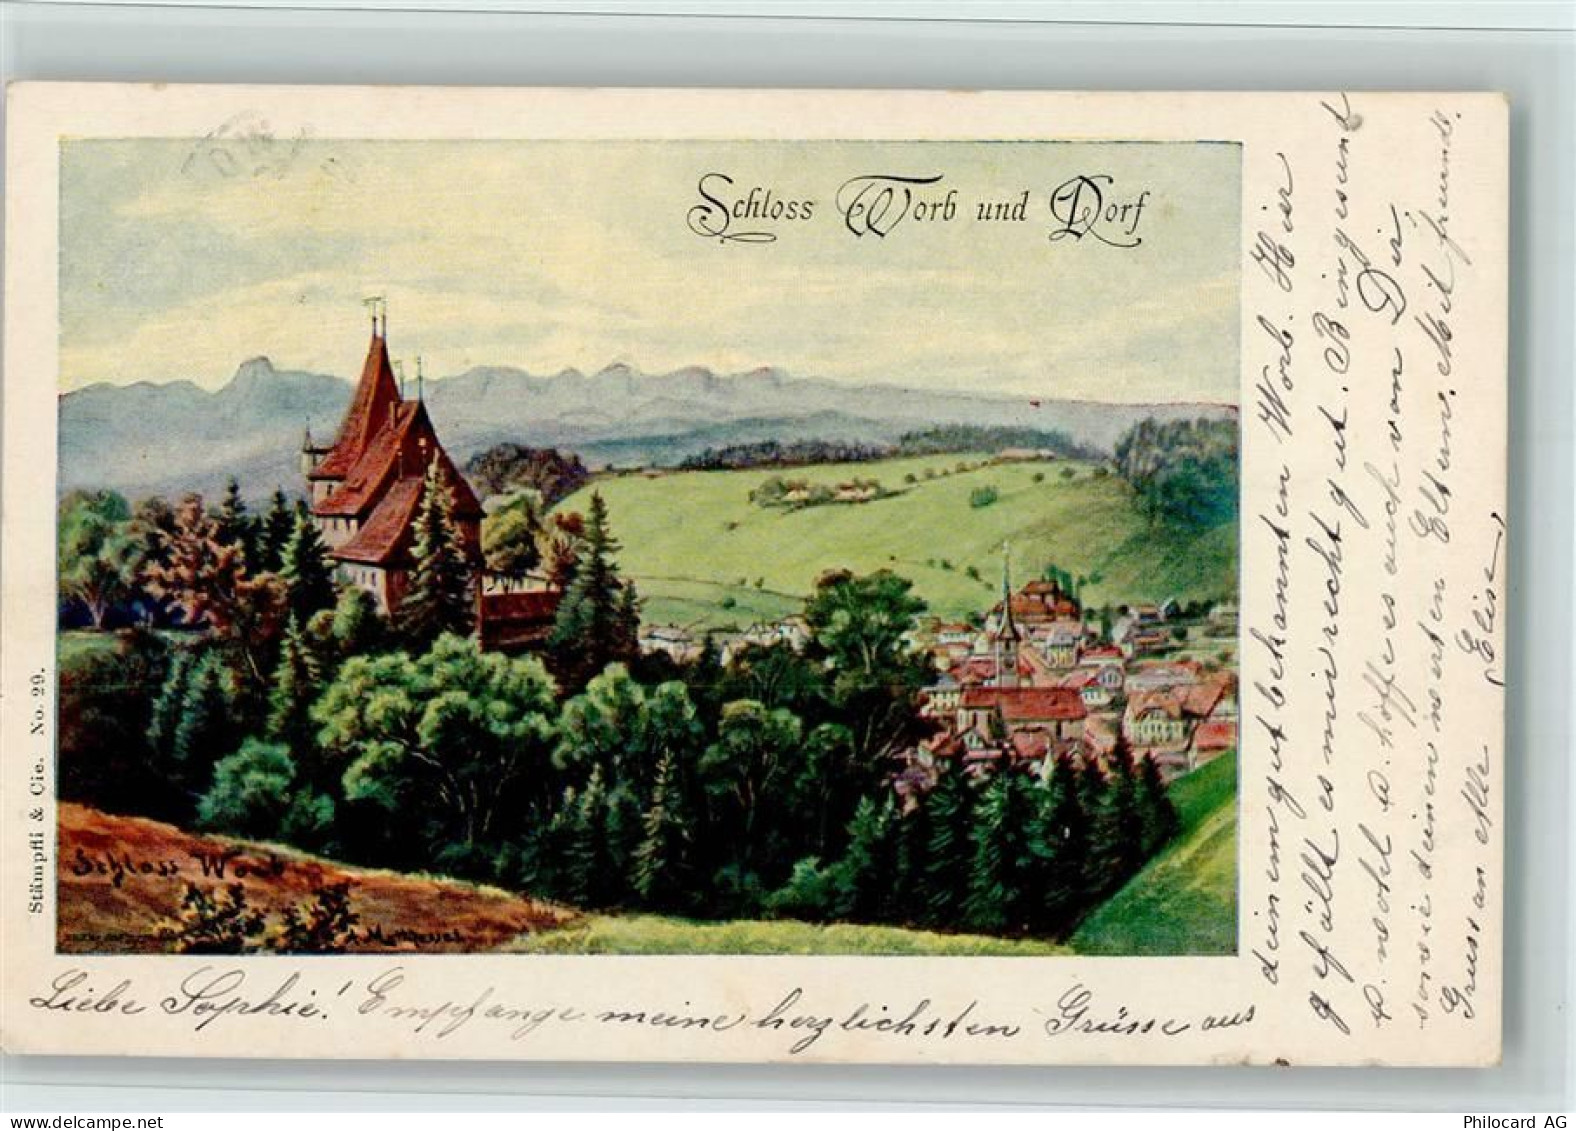 Schloss Worb und Dorf
Stämpfli & Cie. No. 29.
Schloss Worb
Liebe Sophie! Empfange meine herzlichsten Grüsse aus
deinem gut bekannten Worb. Hier
gefällt es mir recht gut. Bin gesund
u. wohl u. hoffe es auch von Dir,
sowie deinen werten Eltern. Mit freundl.
Gruss an Alle Elise
delcampe.net
monalisa.ch
Philocard AG